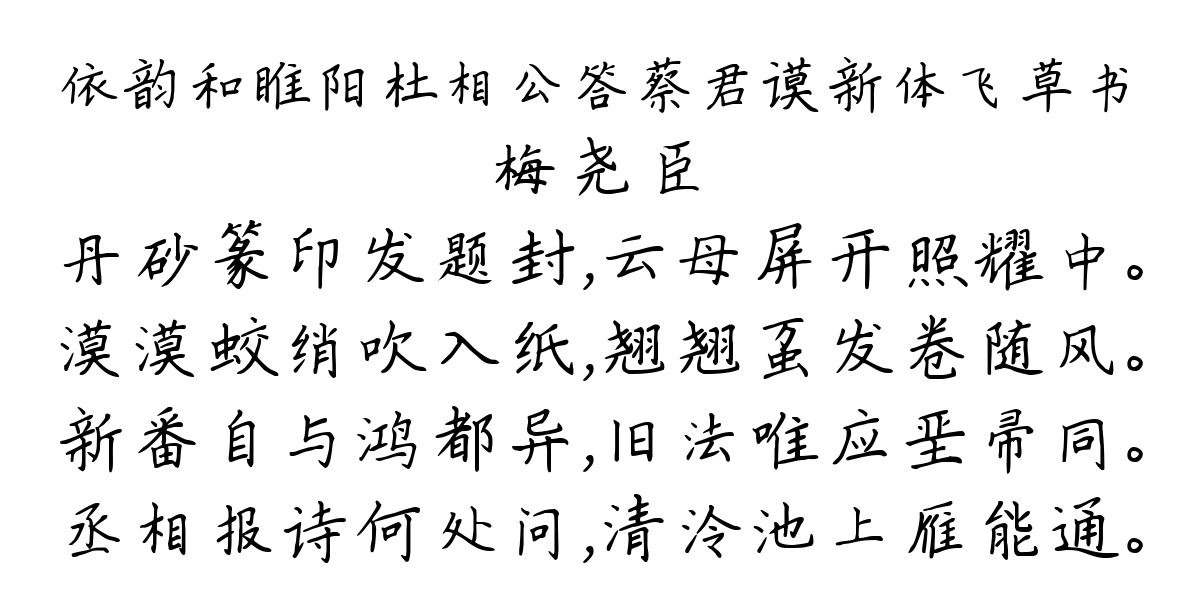 依韵和睢阳杜相公答蔡君谟新体飞草书
梅尧臣
丹砂篆印发题封,云母屏开照耀中。
漠漠蛟绡吹入纸,翘翘虿发卷随风。
新番自与鸿都异,旧法唯应垩帚同。
丞相报诗何处问,清泠池上雁能通。